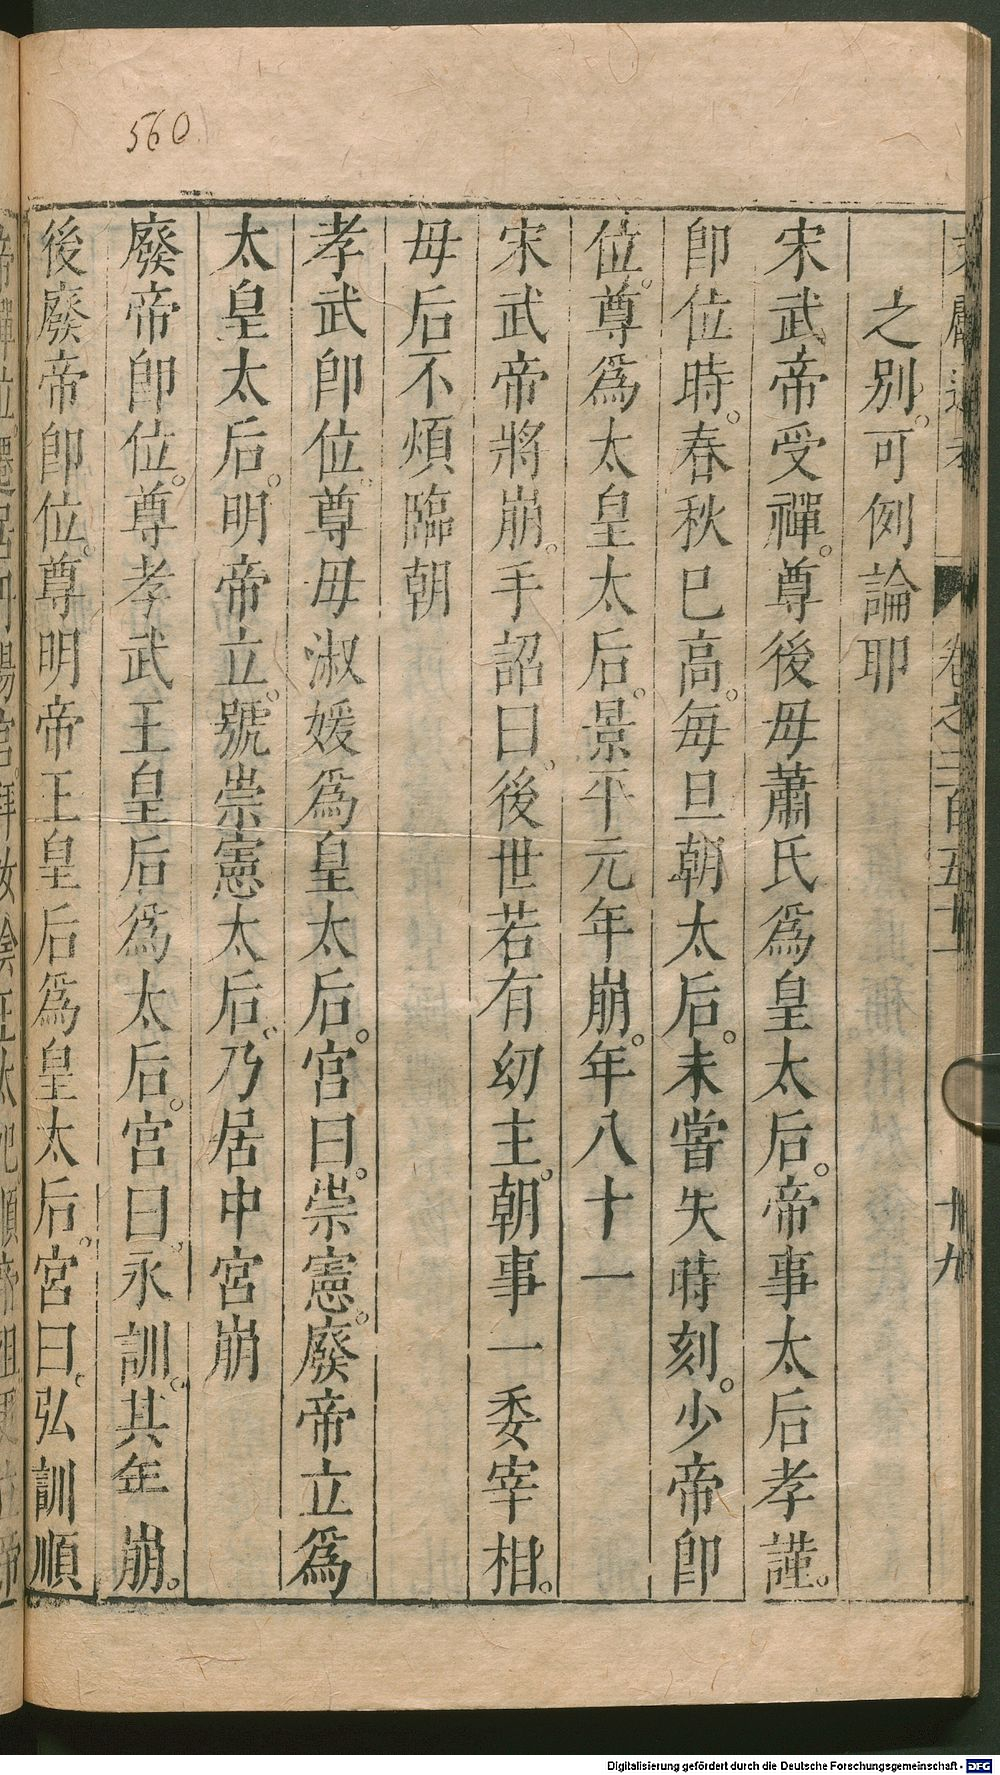 560
之別。可例論耶
宋武帝受禪。尊後母蕭氏爲皇太后。帝事太后孝謹。
卽位時。春秋已高。每旦朝太后。未嘗失時刻。少帝卽
位。尊爲太皇太后。景平元年崩。年八十一
宋武帝將崩。手詔曰。後世若有幼主。朝事一委宰相。
母后不煩臨朝
孝武卽位。尊母淑媛爲皇太后。宮曰。崇憲。廢帝立爲
太皇太后。明帝立。號崇憲太后。乃居中宮崩
廢帝卽位。尊孝武王皇后爲太后。宮曰。永訓。其年崩。
後廢帝卽位。尊明帝王皇后爲皇太后。宮曰。弘訓順
Digitalisierung gefördert durch die Deutsche Forschungsgemeinschaft - DFG